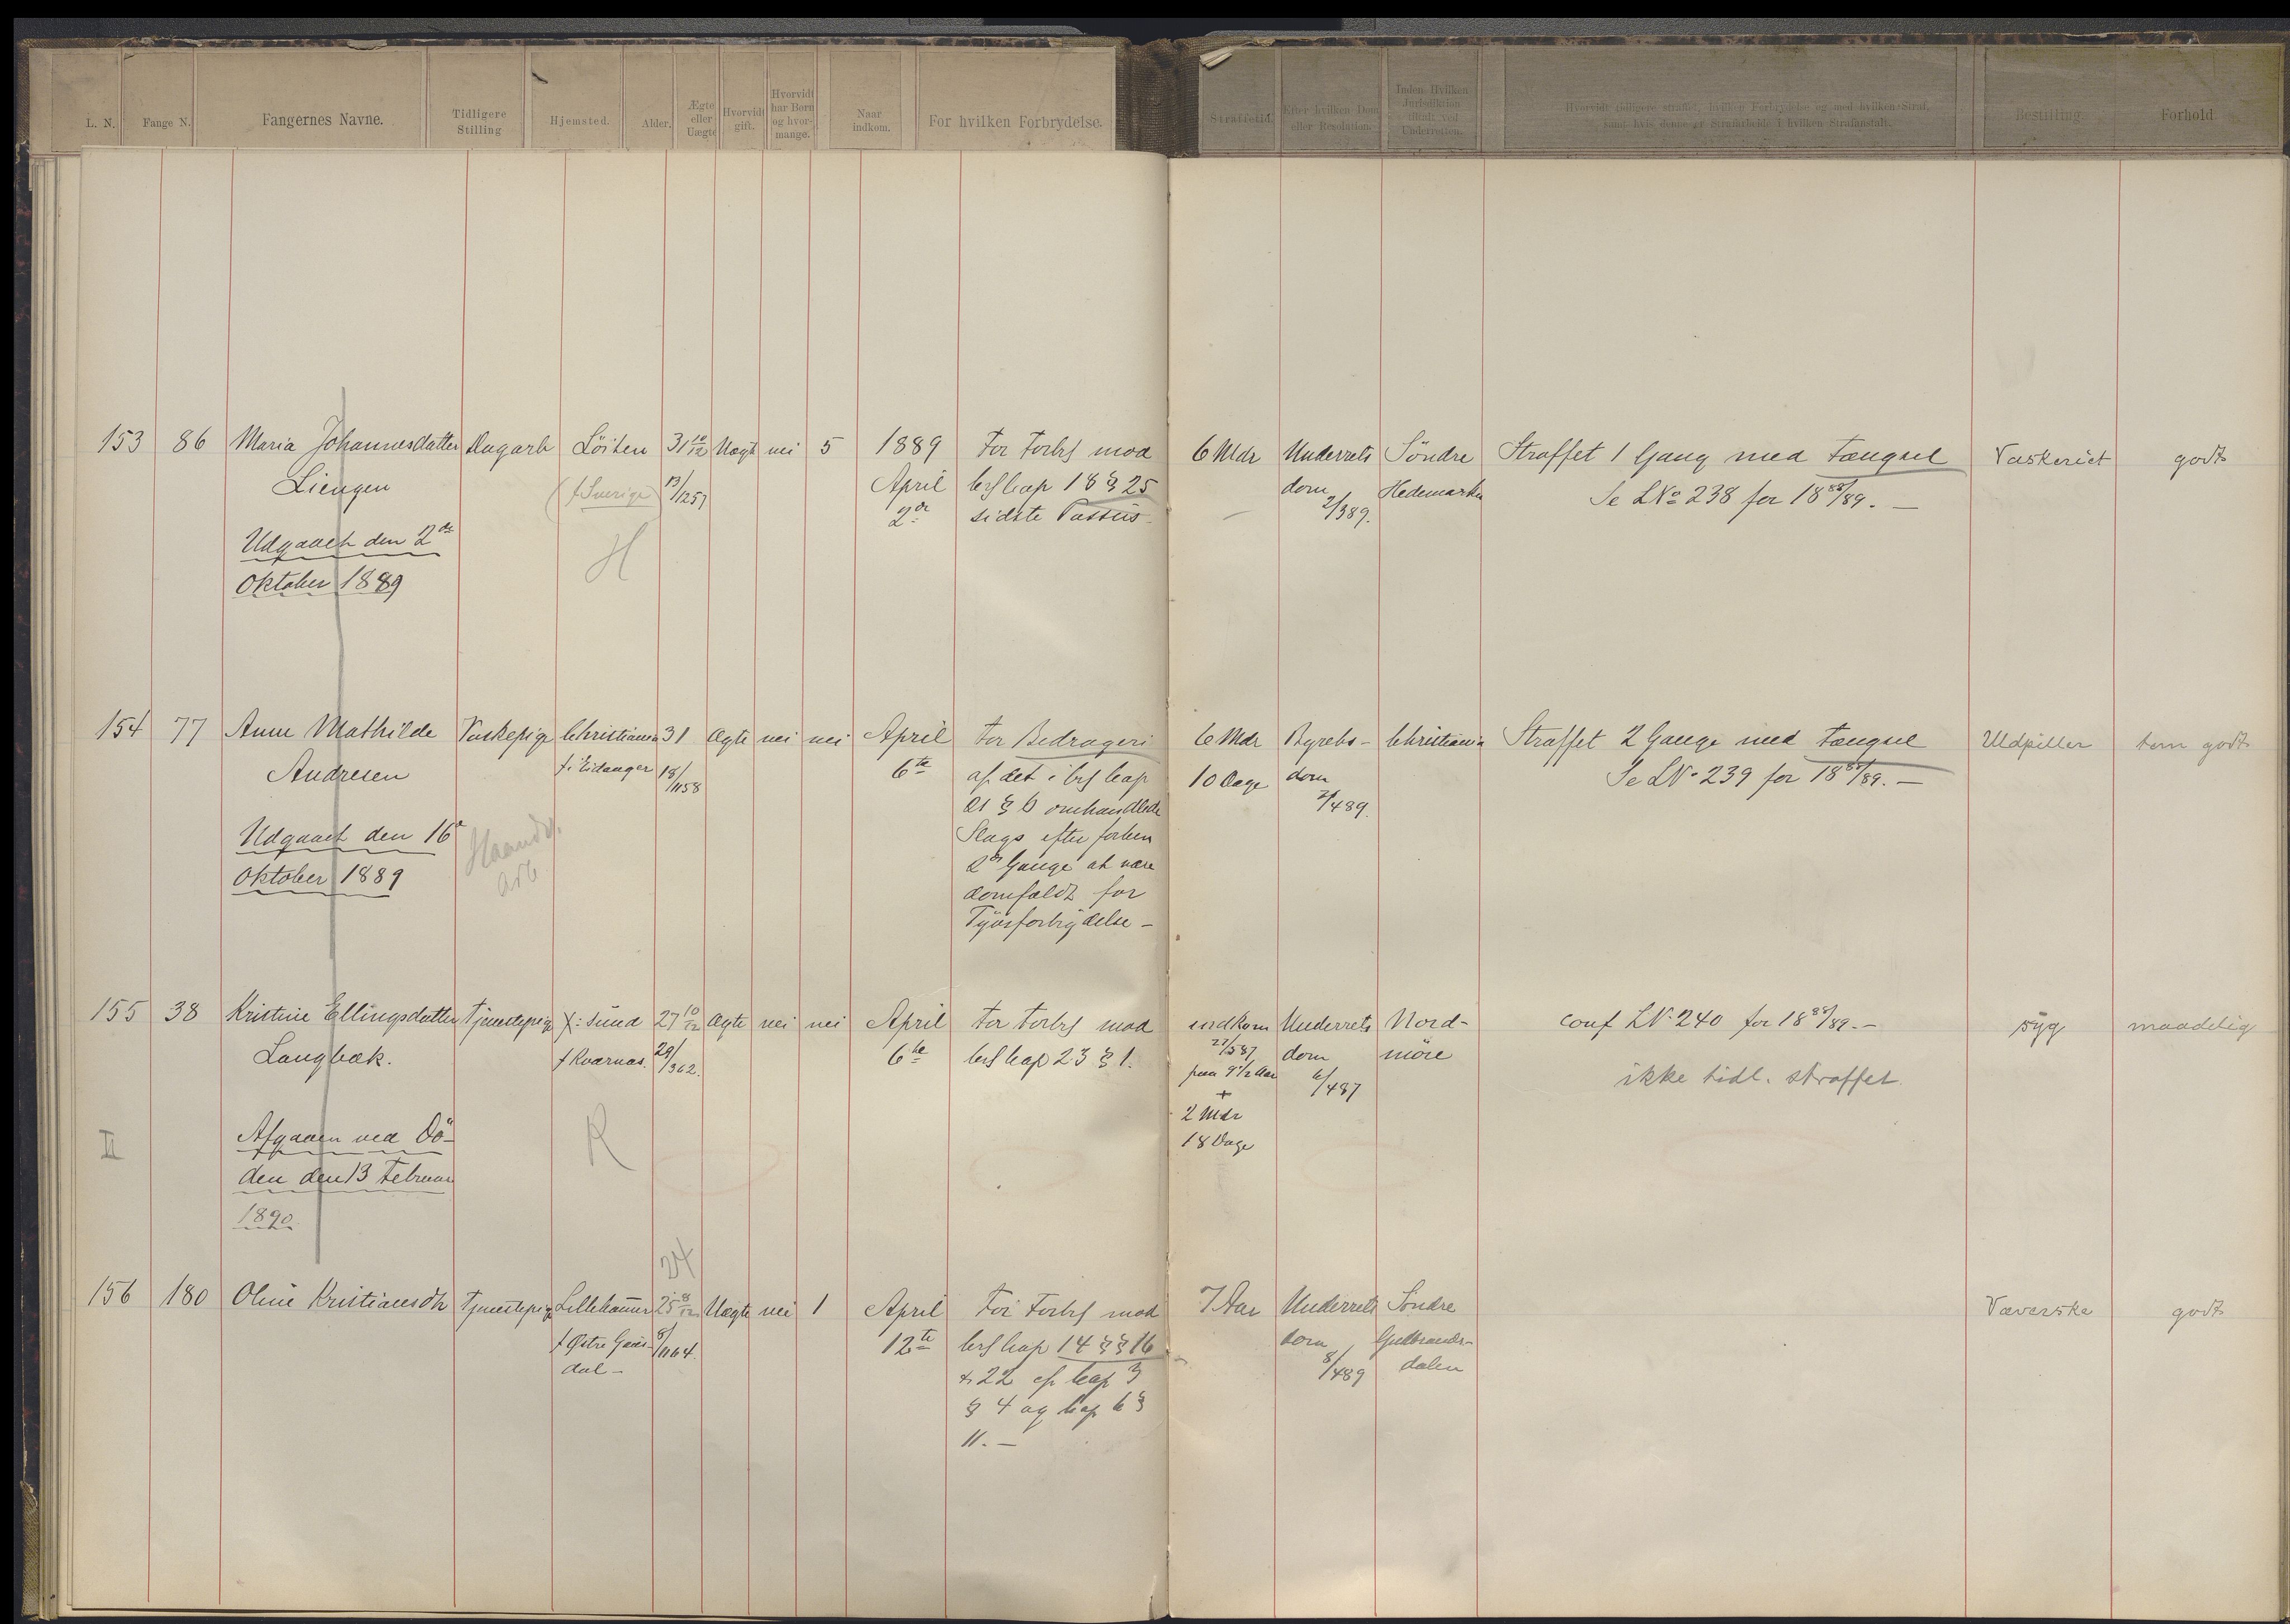 L. N.
Fange N.
Fangernes Navne.
Tidligere
Stilling
Hjemsted.
Alder.
Ægte
eller
Uægte
Hvorvidt
gift.
Hvorvidt
har Børn
og hvor-
mange.
Naar
indkom.
For hvilken Forbrydelse.
Straffetid.
Efter hvilken Dom
eller Resolution.
Inden Hvilken
Jurisdiktion
tiltalt ved
Underretten.
Hvorvidt tidligere straffet, hvilken Forbrydelse og med hvilken Straf,
samt hvis denne er Strafarbeide i hvilken Strafanstalt.
Bestilling
Forhold
153 86 Maria Johannesdatter Dagarb Löiten 31 10/12 Uægt nei 5 1889 For Forbr mod 6 Mdr Underrets Söndre Straffet 1 Gang med Fængsel Vaskeriet godt
Liengen (f Sverige) 13/1257 April lovs Cap 18 § 25 dom Hedemarken Se LNo 238 for 1888/89. —
2de sidste Passus 2/389.
Udgaaet den 2de
Oktober 1889
H
154 77 Anne Mathilde Vaskepige Christiania 31 Ægte nei nei April For Bedrageri 6 Mdr Byrets- Christiania Straffet 2 Gange med Fængsel Udpiller tem godt
Andresen f i Eidanger 18/1158 6te af det i lovs Cap 10 Dage dom Se LN. 239 for 1888/89. —
21 § 6 omhandlede 2/489.
Udgaaet den 16de Slags efter forhen
Oktober 1889 2de Gange at være
Haandv. arb domfældt for
Tyvsforbrydelse —
155 38 Kristine Ellingsdatter Tjenestepige X: sund 27 10/12 Ægte nei nei April For Forbr mod indkom Underrets Nord- conf LN. 240 for 1888/89. — syg maadelig
Langbæk. f Kværnæs. 29/362. 6te lovs Cap 23 § 1. 27/587 dom möre
paa 9 1/2 Aar 6/487
ikke tidl. straffet.
+
2 Mdr
18 Dage
II
Afgaaen ved Dö-
den den 13 Februar
1890
R
24
156 180 Oline Kristiansdtr Tjenestepige Lillehammer 25 8/12 Uægte nei 1 April For Forbr mod 7 Aar Underrets Söndre Væverske godt
f Østre Gaus- 8/1164. 12te lovs Cap 14 §§ 16 dom Gudbrands-
dal — & 22 cfr Cap 3 8/489 dalen
§ 4 og Cap 6 §
11. —